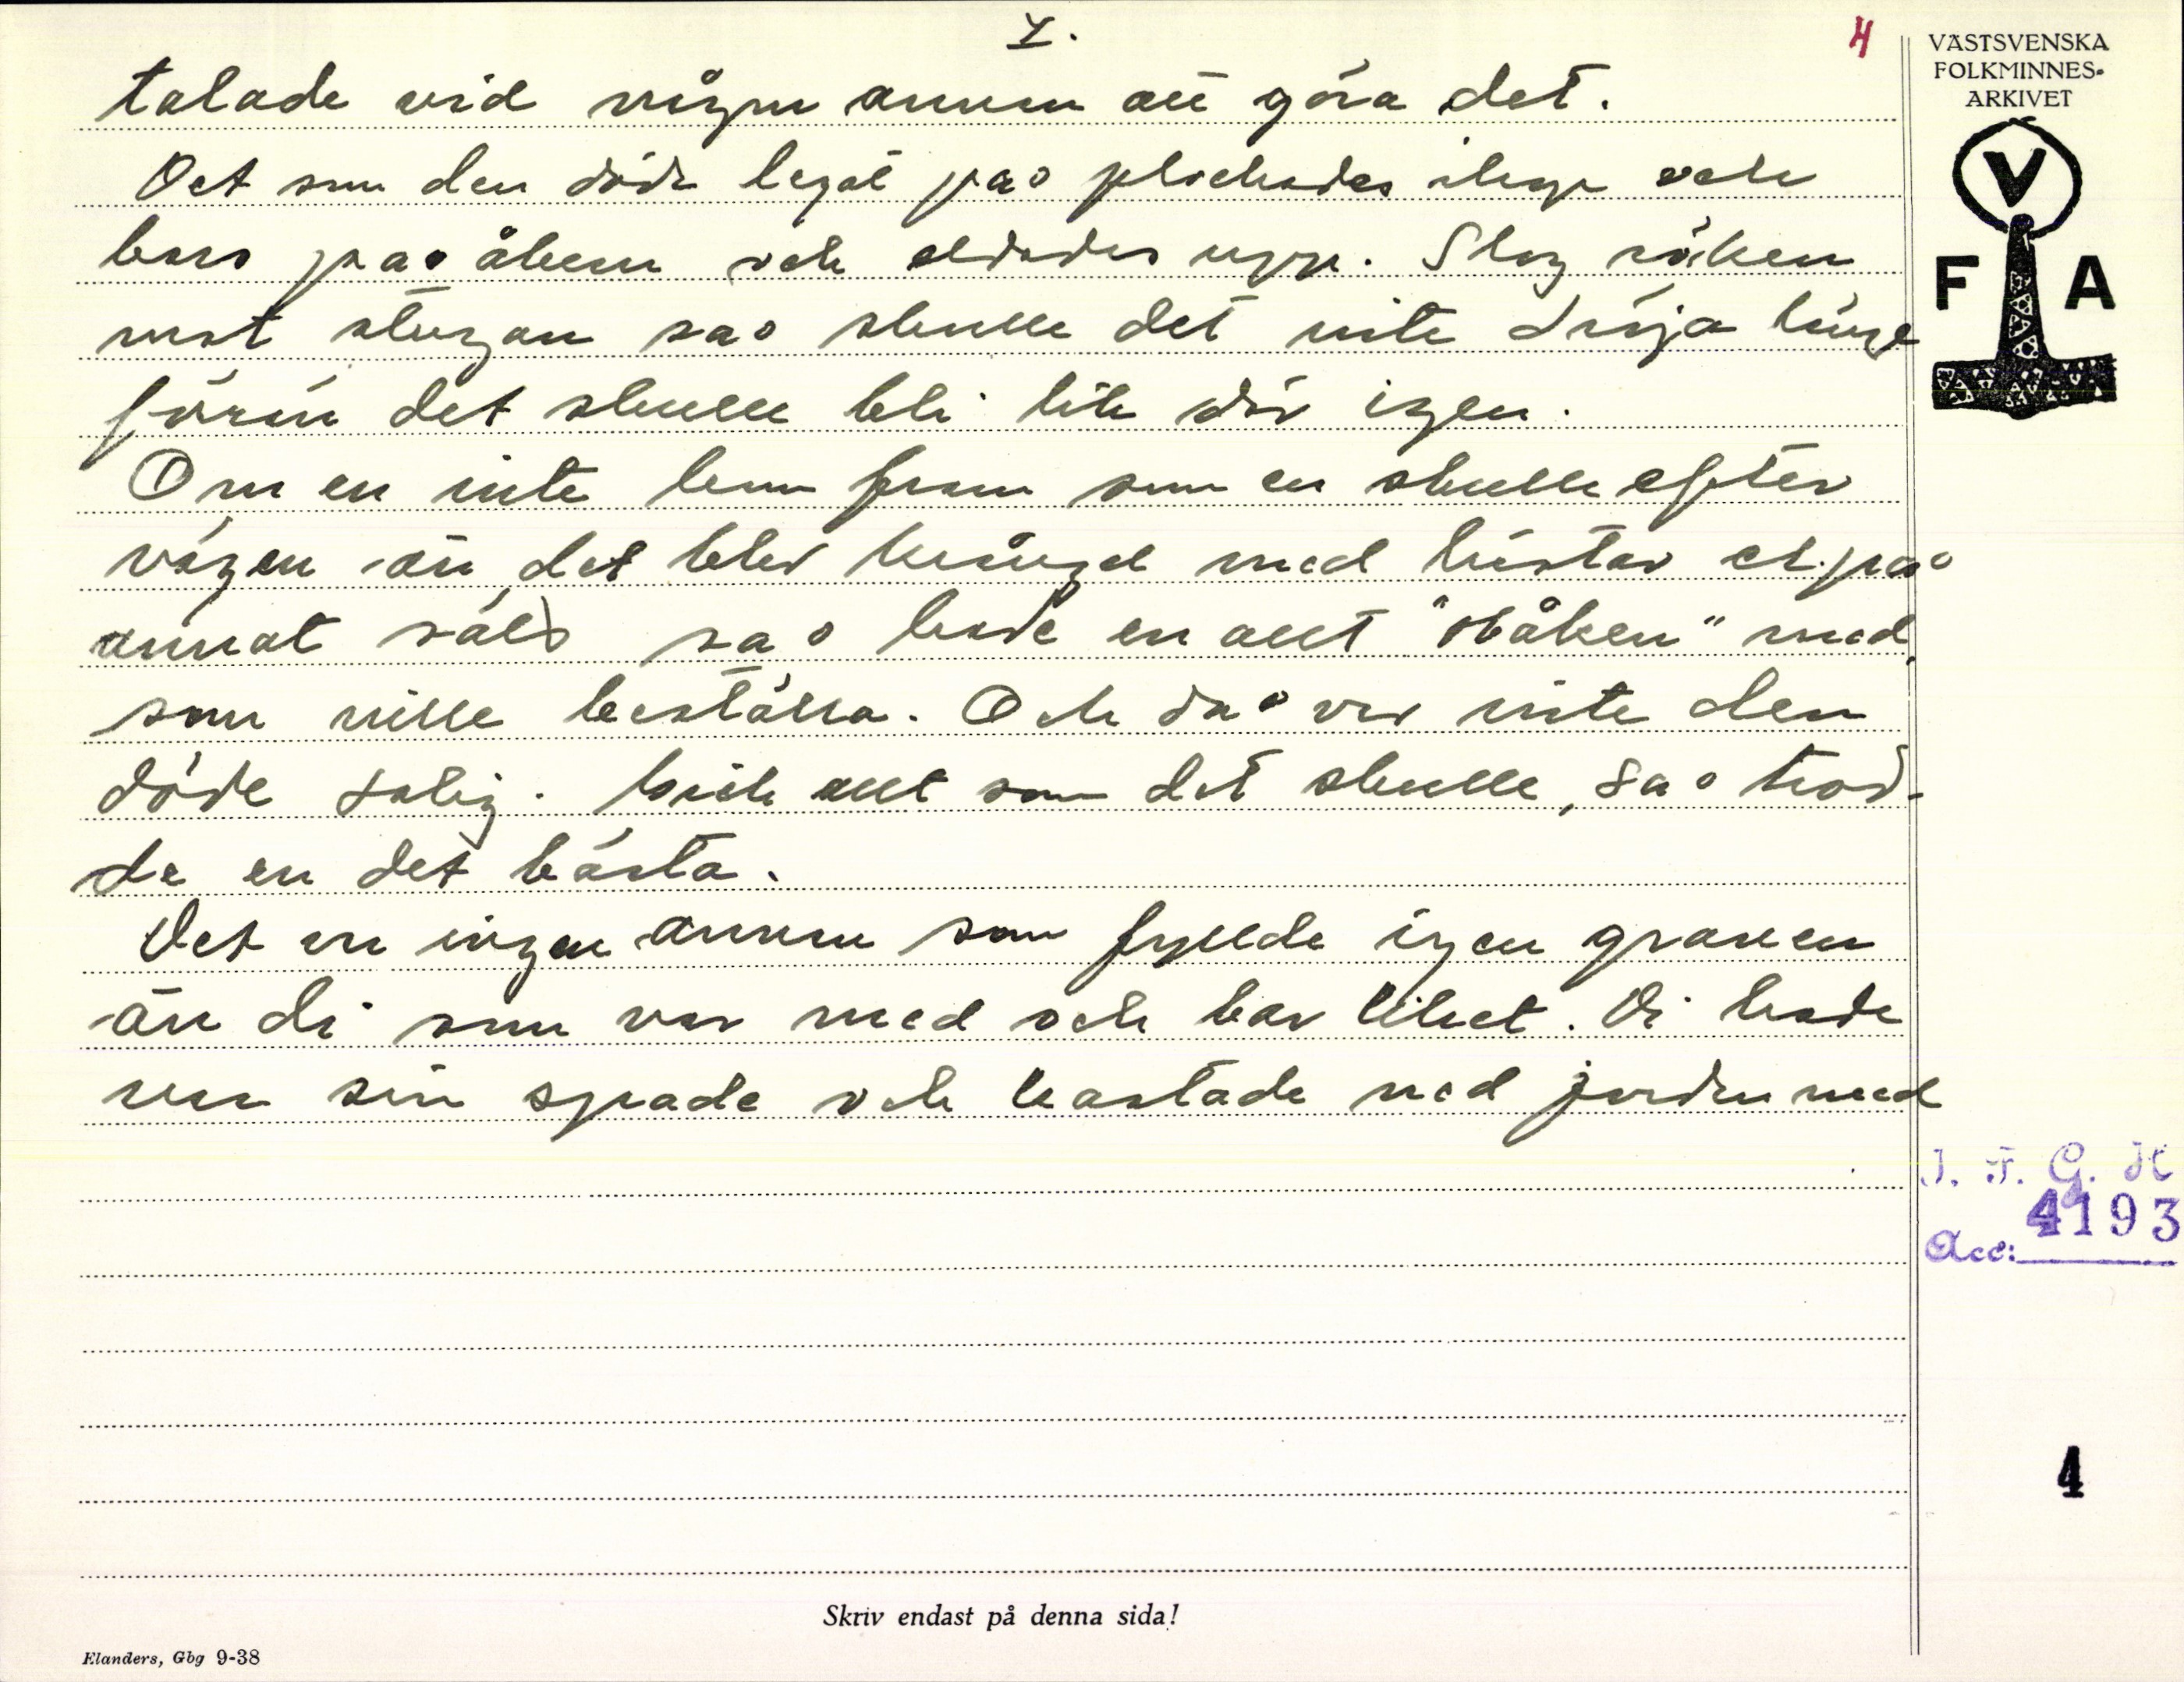 4.
4
VÄSTSVENSKA
FOLKMINNES-
ARKIVET
V
F A
talade vid någon annan att göra det.
Det som den döde legat på plockades ihop och
bars på åkern och eldades upp. Slog röken
mot stugan så skulle det inte dröja länge
förrän det skulle bli lik där igen.
Om en inte kom fram som en skulle efter
vägen än det blev krångel med hästar el. på
annat sätt så hade en allt "Håken" med
som ville beställa. Och då var inte den
döde salig. Gick allt som det skulle, så trod-
de en det bästa.
Det var ingen annan som fyllde igen graven
än di som var med och bar liket. Di hade
var sin spade och kastade ned jorden med
I. F. G. H
4193
Acc:
4
Skriv endast på denna sida!
Elanders, Gbg 9-38